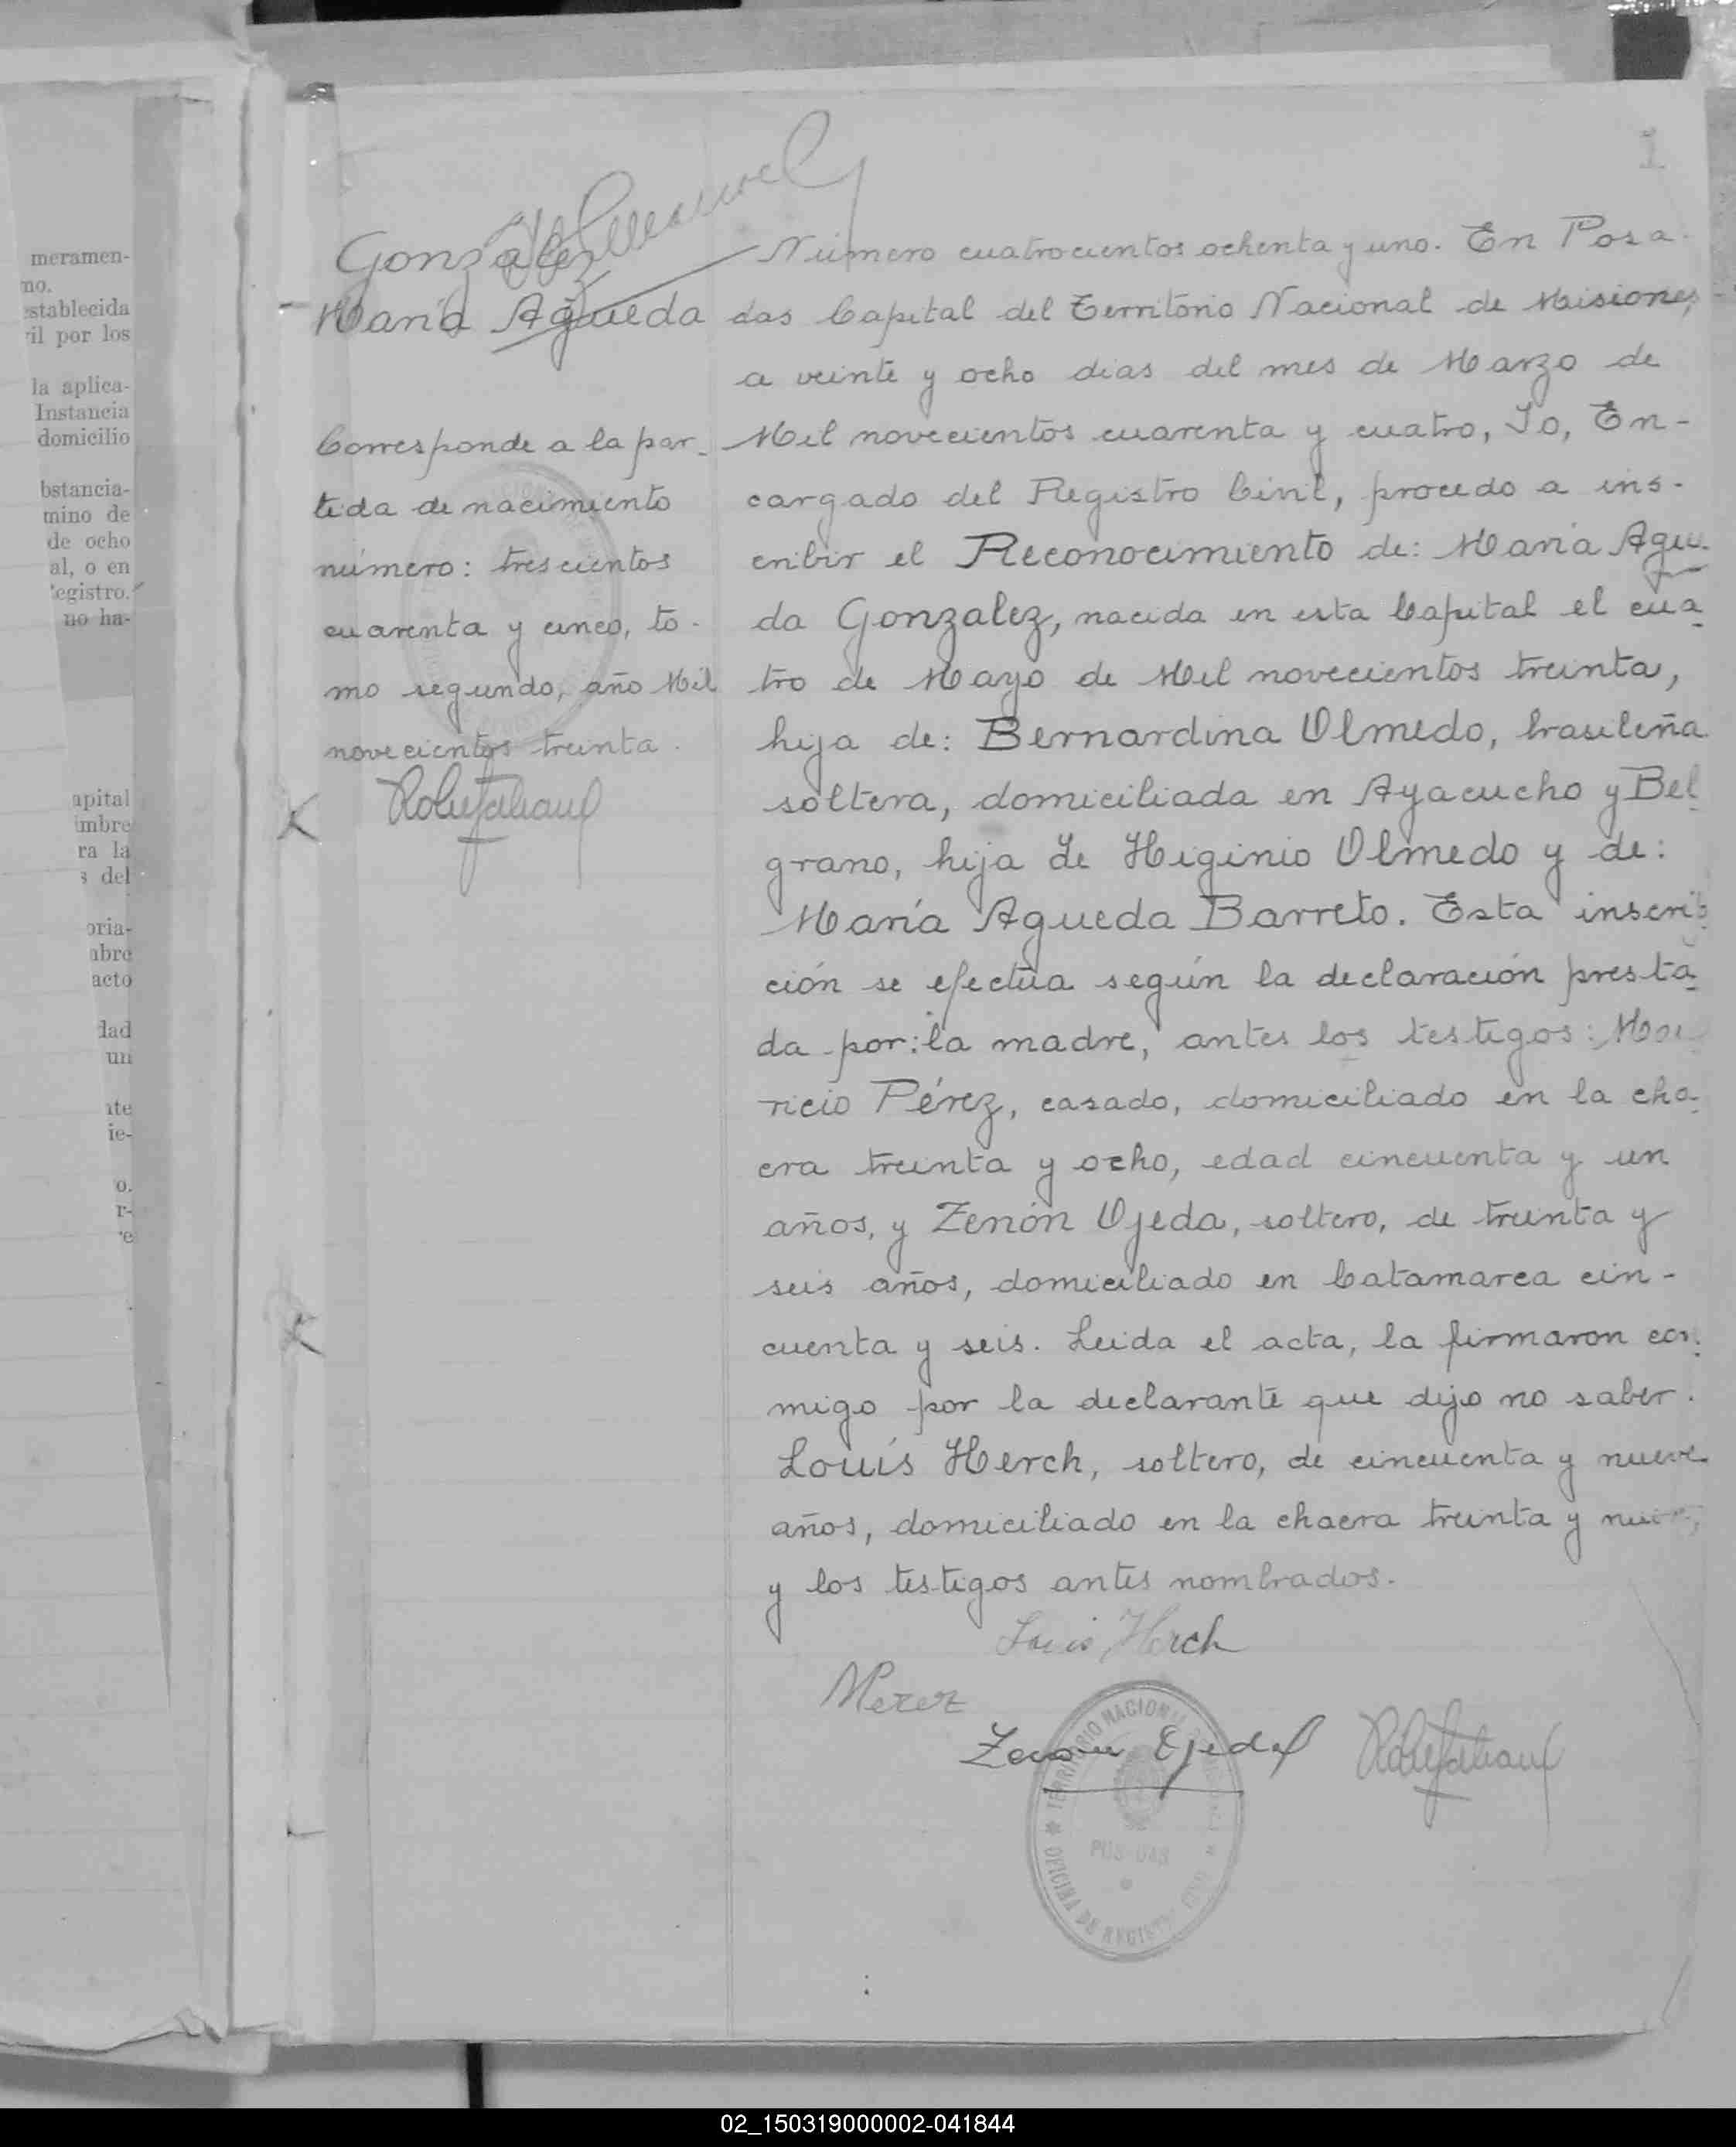 meramen-
no.
stablecida
il por los
la aplica-
Instancia
domicilio
bstancia-
mino de
de ocho
al, o en
egistro.
no ha-
apital
imbre
ra la
s del
oria-
abre
acto
dad
un
ate
ie-
o.
r-
e
1
Gonzalez
María Agueda
Corresponde a la par-
tida de nacimiento
número: trescientos
cuarenta y cinco, to-
mo segundo, año Mil
novecientos treinta.
Número cuatrocientos ochenta y uno. En Posa-
das Capital del Territorio Nacional de Misiones,
a veinte y ocho dias del mes de Marzo de
Mil novecientos cuarenta y cuatro, Yo, En-
cargado del Registro Civil, procedo a ins-
cribir el Reconocimiento de: María Ague-
da Gonzalez, nacida en esta Capital el cua-
tro de Mayo de Mil novecientos treinta,
hija de: Bernardina Olmedo, brasileña
soltera, domiciliada en Ayacucho y Bel-
grano, hija de Higinio Olmedo y de:
María Agueda Barreto. Esta inscrip
ción se efectúa según la declaración presta-
da por: la madre, antes los testigos:
ricio Pérez, casado, domiciliado en la cha-
cra treinta y ocho, edad cincuenta y un
años, y Zenón Ojeda, soltero, de treinta y
seis años, domiciliado en Catamarca cin-
cuenta y seis. Leida el acta, la firmaron con-
migo por la declarante que dijo no saber.
Louis Herch, soltero, de cincuenta y nueve
años, domiciliado en la chacra treinta y nueve,
y los testigos antes nombrados.
Louis Herch
MPerez
Zenon Ojeda
TERRITORIO NACIONAL
POSADAS
OFICINA DE REGISTRO CIVIL
02_150319000002-041844